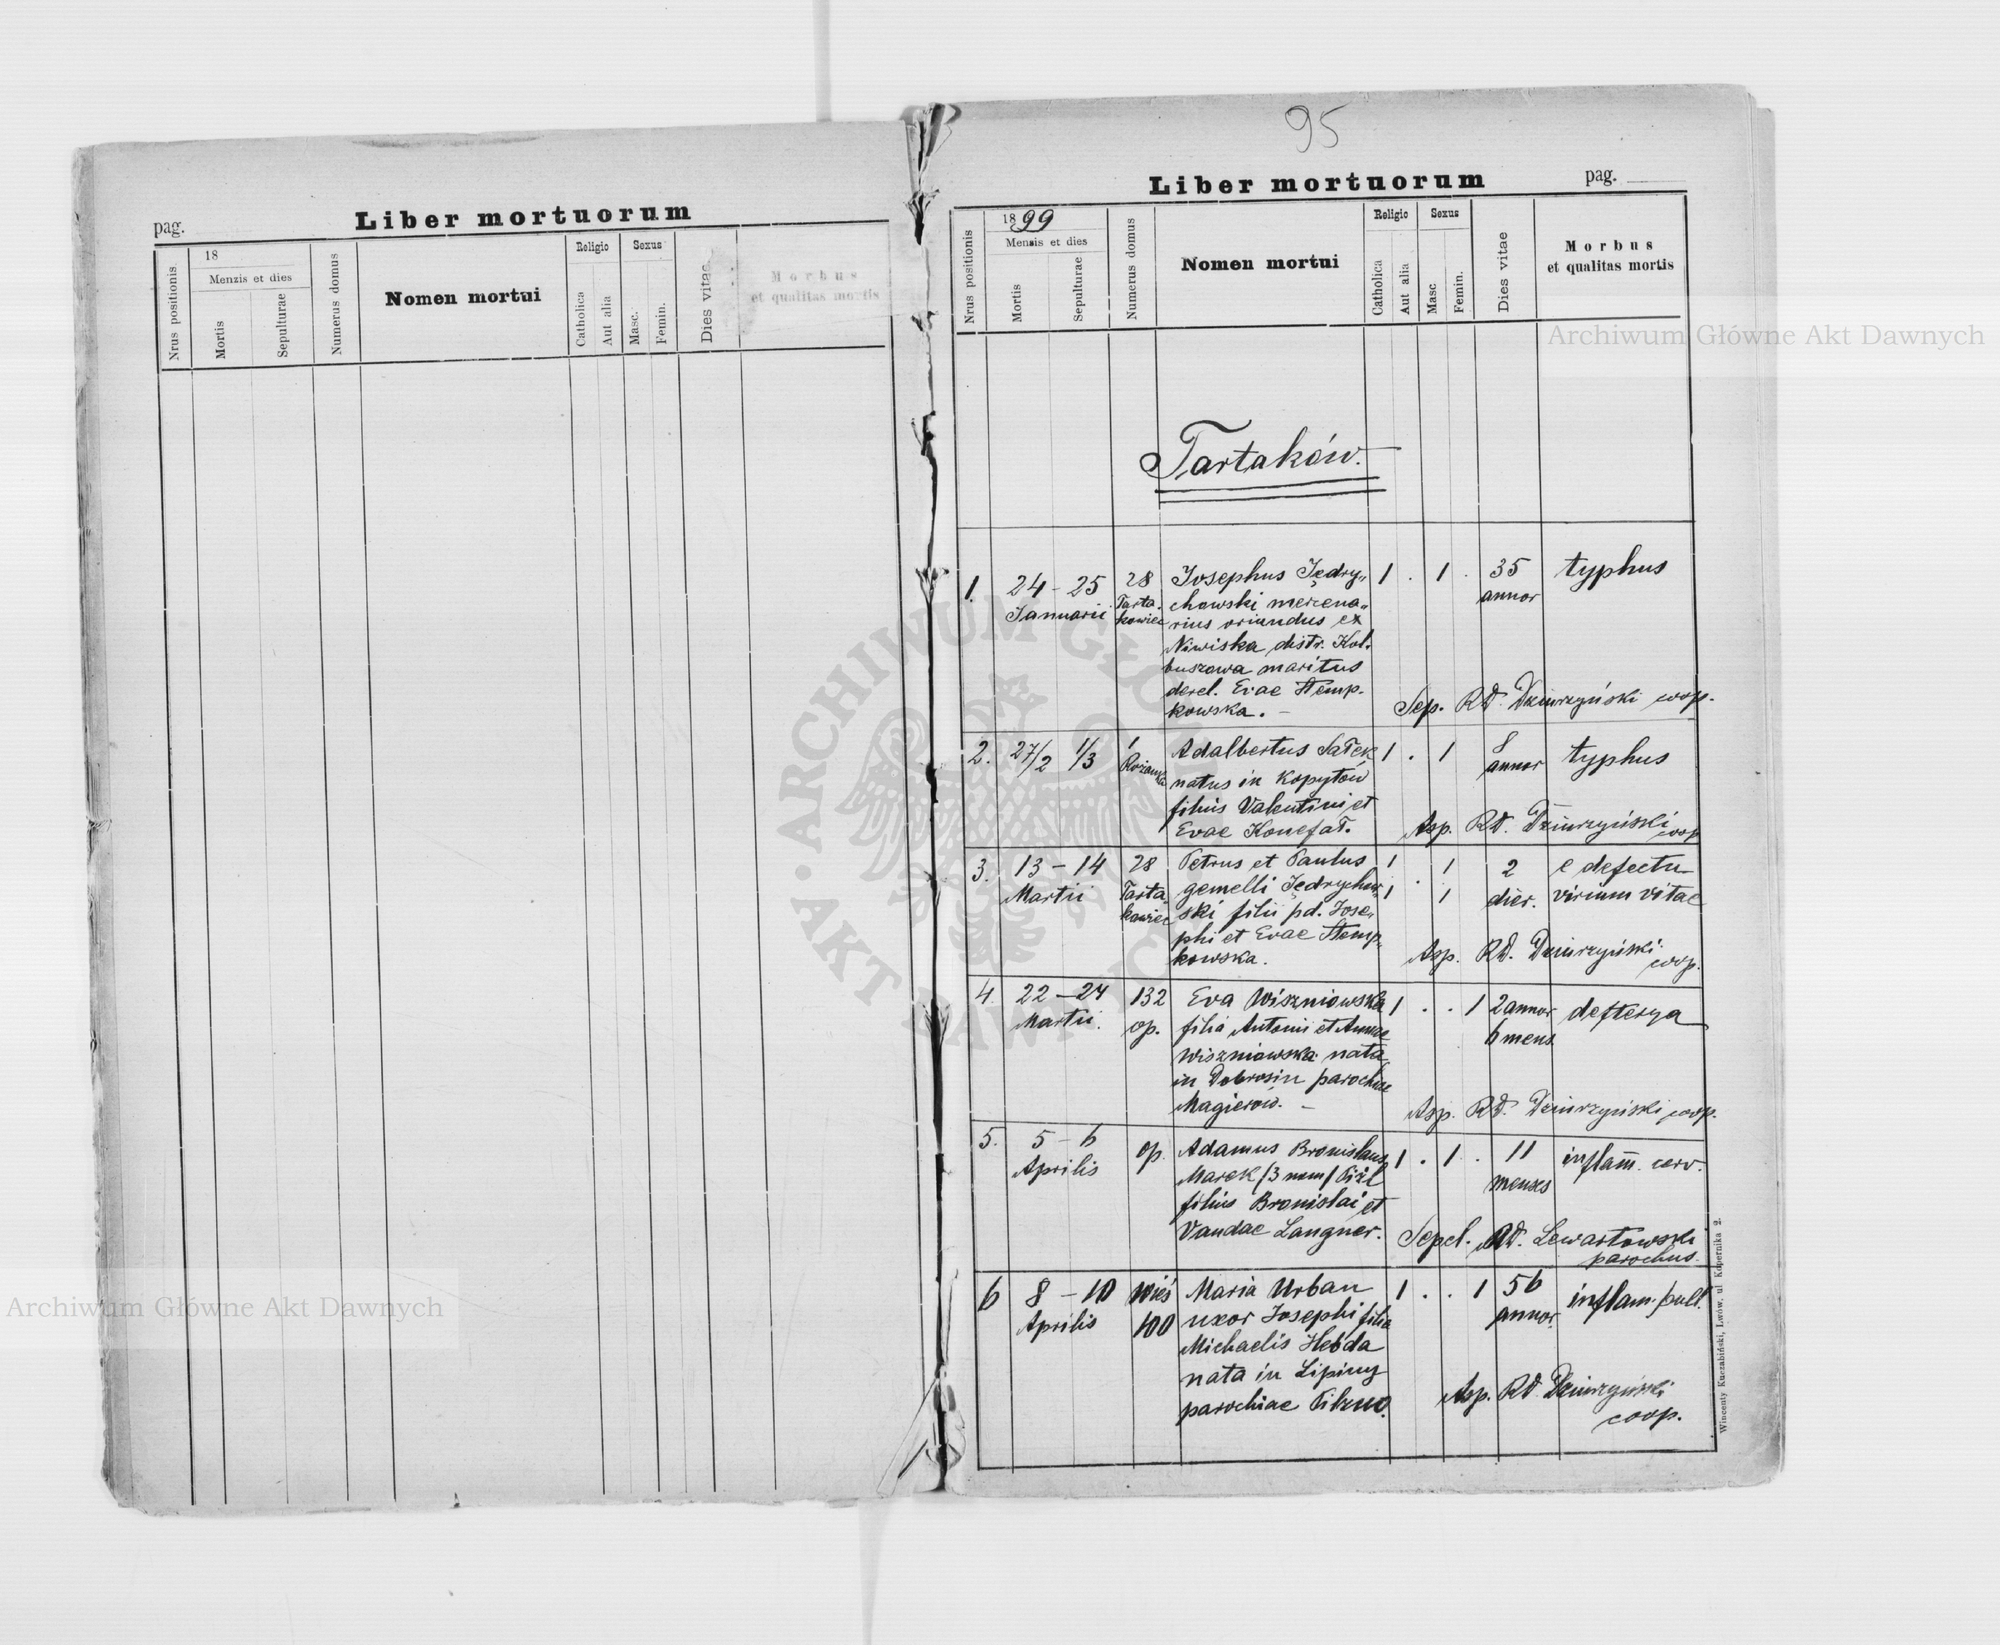 pag.
Liber mortuorum
Nrus positionis
18
Menzis et dies
Mortis
Sepulturae
Numerus domus
Nomen mortui
Religio
Catholica
Aut alia
Sexus
Masc.
Femin.
Dies vitae
Morbus
et qualitas mortis
95
Liber mortuorum
pag.
Nrus positionis
1899
Mensis et dies
Mortis
Sepulturae
Numerus domus
Nomen mortui
Religio
Catholica
Aut alia
Sexus
Masc
Femin.
Dies vitae
Morbus
et qualitas mortis
Tartaków.
1. 24 - 25 28 Josephus Jędry„ 1 . 1 . 35 typhus
Januarii Tarta. chowski mercena„ annor
kowiec rius oriundus ex
Niwiska distr. Kol.
buszowa maritus
derel. Evae Stemp.
kowska. - Sep. RD. Dziurzyński coop.
2. 27/2 1/3 1 Adalbertus Sałek 1 . 1 8 typhus
Rozanka natus in Kopytów annor
filius Valentini et
Evae Konefał. Asp. RD. Dziurzyński coop
3. 13 - 14 28 Petrus et Paulus 1 . 1 2 e defectu
Martii Tarta„ gemelli Jędrychow„ 1 1 dier. virium vitae
kawiec ski filii pd. Jose„
phi et Evae Stemp„
kowska. Asp. RD. Dziurzyński coop.
4. 22 - 24 132 Eva Wiszniowska 1 . . 1 2 annor defterya
Martii. op. filia Antonii et Annae 6 mens
Wiszniowska nata
in Dobrosin parochiae
Magierow. - Asp. RD. Dziurzyński coop.
5. 5 - 6 op. Adamus Bronislaus 1 . 1 . 11 inflam. cerv.
Aprilis Marek /3 nom/ Piżl menses
filius Bronislai et
Vandae Langner. Sepel. RD. Lewartowski
parochus.
6 8 - 10 Wieś Maria Urban 1 . . 1 56 inflam. pull.
Aprilis 100 uxor Josephi filia annor.
Michaelis Hebda
nata in Lipiny
parochiae Pilzno. Asp. RD Dziurzyński
coop.
Wincenty Kuczabiński, Lwów, ul Kopernika 2.
Archiwum Główne Akt Dawnych
Archiwum Główne Akt Dawnych
ARCHIWUM GŁÓWNE AKT DAWNYCH